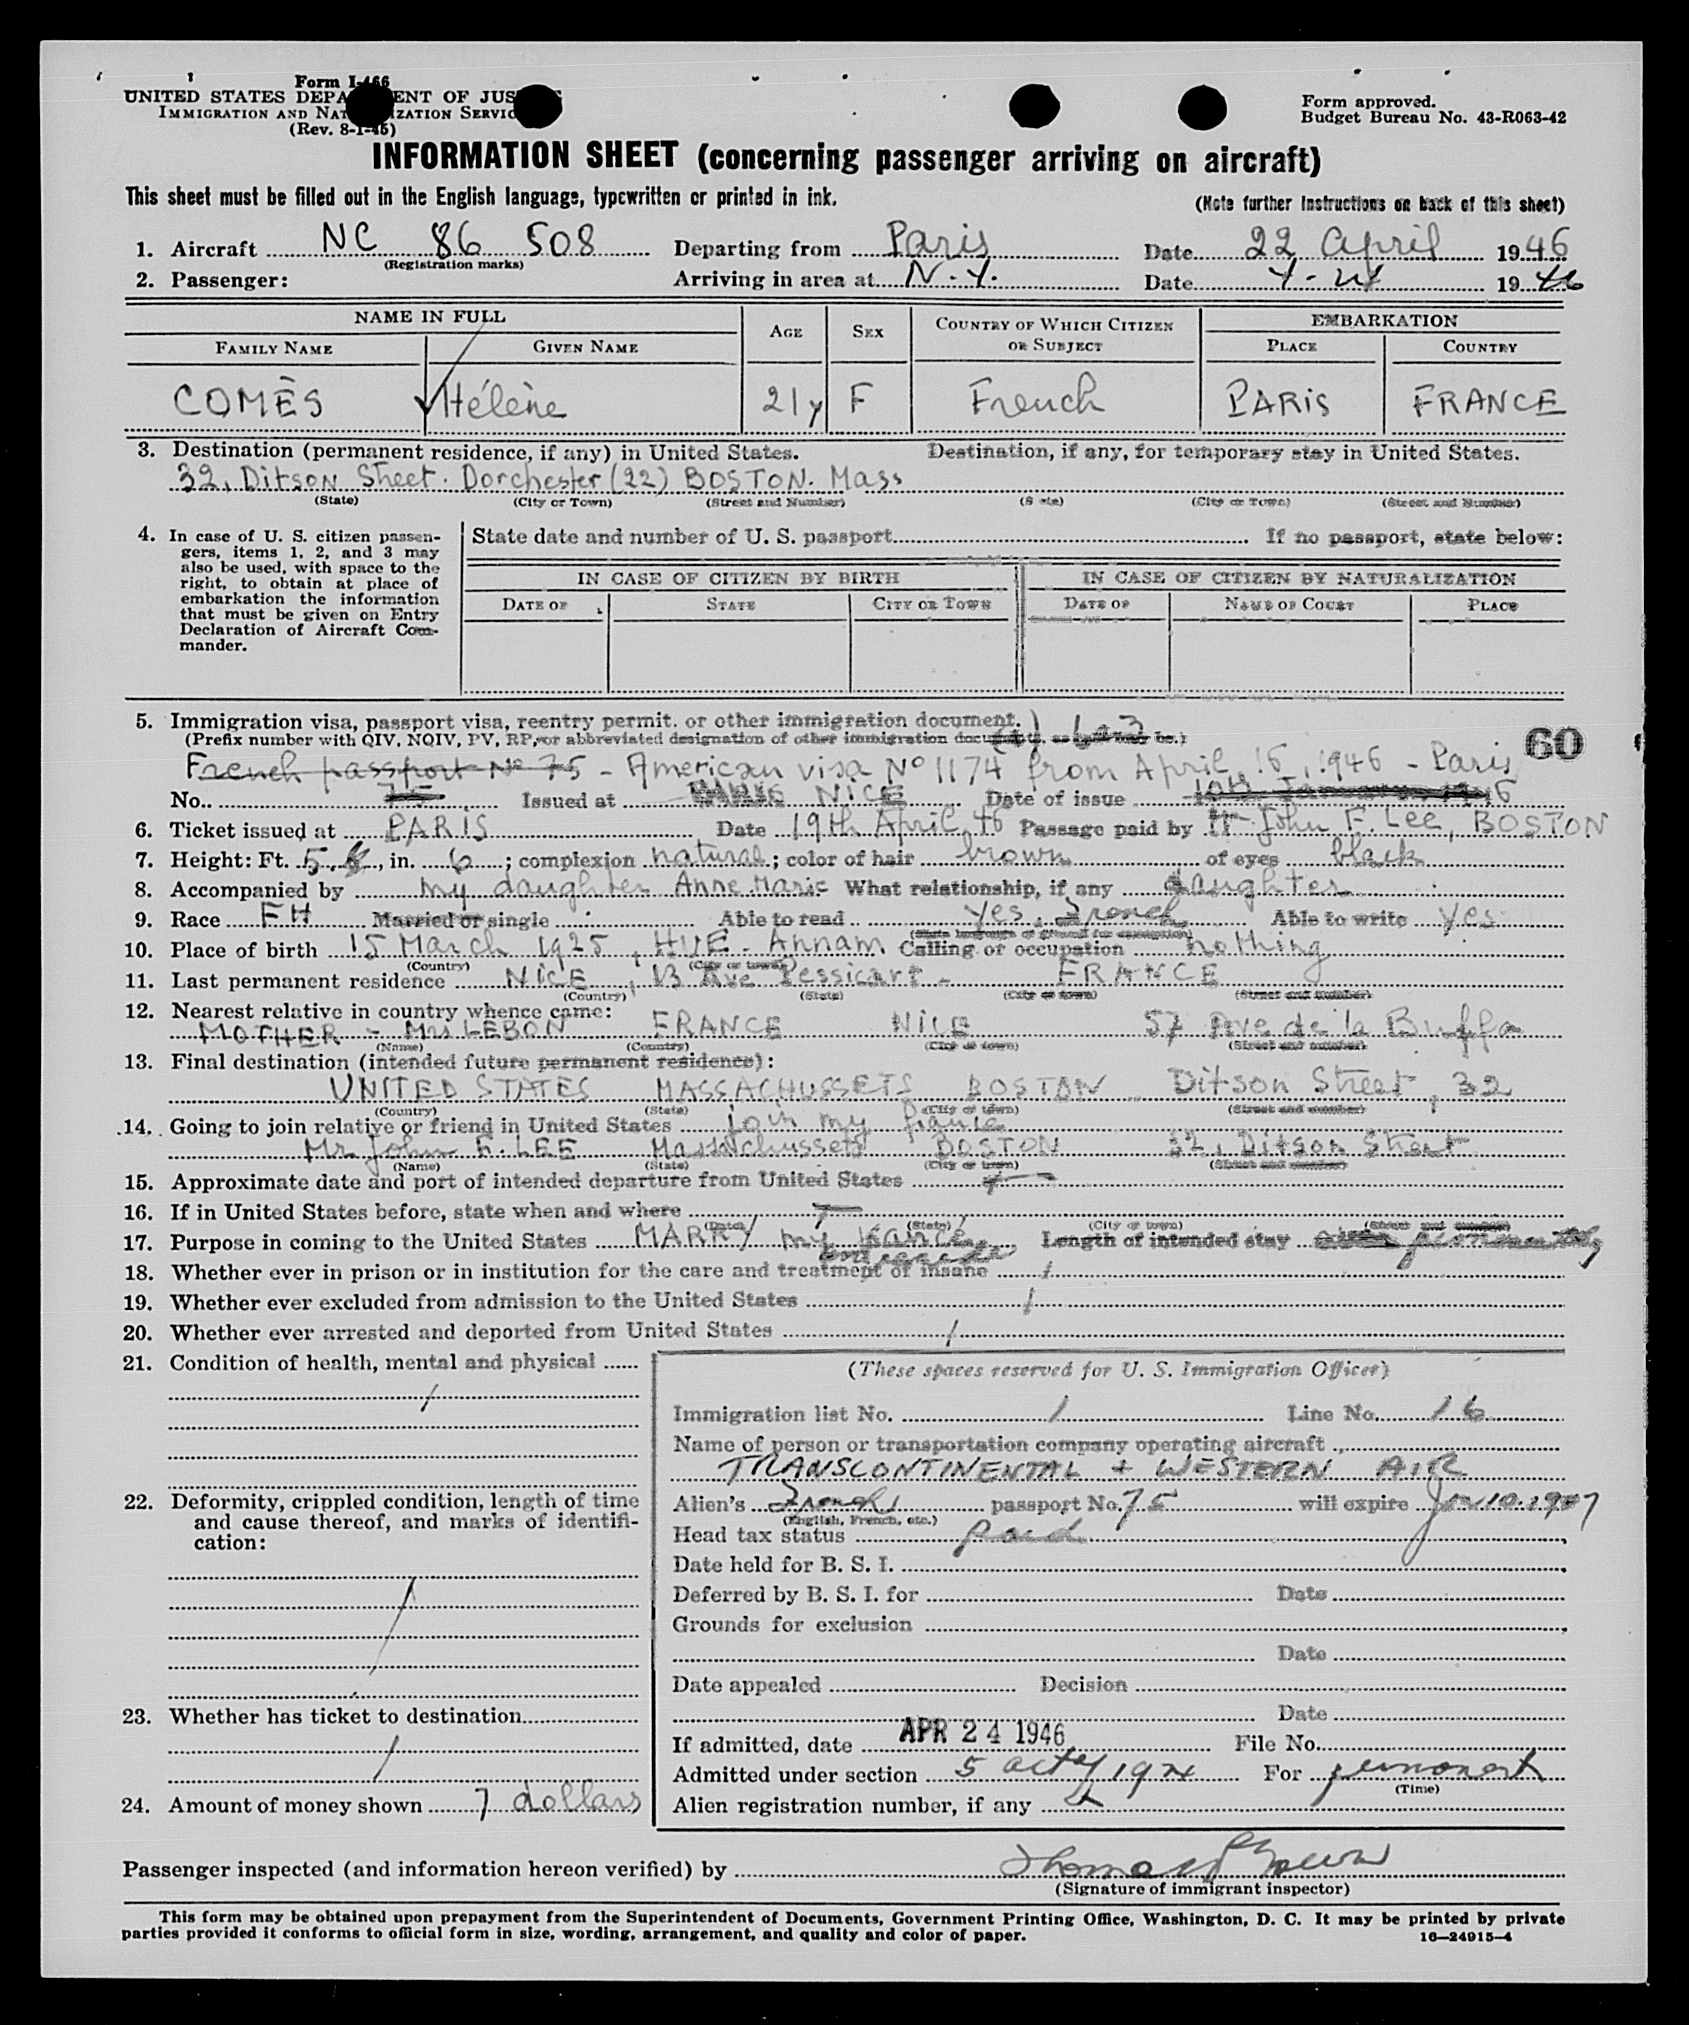 Form I-466
UNITED STATES DEPARTMENT OF JUSTICE
IMMIGRATION AND NATURALIZATION SERVICE
(Rev. 8-1-45)
Form approved.
Budget Bureau No. 43-R063-42
INFORMATION SHEET (concerning passenger arriving on aircraft)
This sheet must be filled out in the English language, typewritten or printed in ink.
(Note further instructions on back of this sheet)
1. Aircraft NC 86 508 Departing from Paris Date 22 April 1946
(Registration marks)
2. Passenger: Arriving in area at N.Y. Date 4-24 1946
NAME IN FULL AGE SEX COUNTRY OF WHICH CITIZEN OR SUBJECT EMBARKATION
FAMILY NAME GIVEN NAME PLACE COUNTRY
COMÈS Hélène 21y F French PARIS FRANCE
3. Destination (permanent residence, if any) in United States. Destination, if any, for temporary stay in United States.
32, Ditson Street. Dorchester (22) BOSTON. Mass
(State) (City or Town) (Street and Number) (State) (City or Town) (Street and Number)
4. In case of U. S. citizen passen-
gers, items 1, 2, and 3 may
also be used, with space to the
right, to obtain at place of
embarkation the information
that must be given on Entry
Declaration of Aircraft Com-
mander.
State date and number of U. S. passport If no passport, state below:
IN CASE OF CITIZEN BY BIRTH IN CASE OF CITIZEN BY NATURALIZATION
DATE OF STATE CITY OR TOWN DATE OF NAME OF COURT PLACE
5. Immigration visa, passport visa, reentry permit, or other immigration document.
(Prefix number with QIV, NQIV, PV, RP, or abbreviated designation of other immigration document, as may be.)
60
French passport No 75 - American visa No 1174 from April 16, 1946 - Paris
No. 75 Issued at PARIS NICE Date of issue 10th January 1946
6. Ticket issued at PARIS Date 19th April 46 Passage paid by John F. Lee, BOSTON
7. Height: Ft. 5, in. 6; complexion natural; color of hair brown of eyes black
8. Accompanied by my daughter Anne Marie What relationship, if any daughter
9. Race FH Married or single Able to read yes, French Able to write yes
(State language or ground for exemption)
10. Place of birth 15 March 1925, HUE - Annam. Calling or occupation nothing
(Country) (City or town)
11. Last permanent residence NICE, 13 Ave Pessicart - FRANCE
(Country) (State) (City or town) (Street and number)
12. Nearest relative in country whence came:
MOTHER - Mrs LEBON FRANCE NICE 57 Ave de la Buffa
(Name) (Country) (City or town) (Street and number)
13. Final destination (intended future permanent residence):
UNITED STATES MASSACHUSSETS BOSTON Ditson Street, 32
(Country) (State) (City or town) (Street and number)
14. Going to join relative or friend in United States join my fiance
Mr John F. LEE Massachussets BOSTON 32, Ditson Street
(Name) (State) (City or town) (Street and number)
15. Approximate date and port of intended departure from United States
16. If in United States before, state when and where
(Date) (State) (City or town) (Street and number)
17. Purpose in coming to the United States MARRY my fiance and reside Length of intended stay permanently
18. Whether ever in prison or in institution for the care and treatment of insane /
19. Whether ever excluded from admission to the United States /
20. Whether ever arrested and deported from United States /
21. Condition of health, mental and physical
/
22. Deformity, crippled condition, length of time
and cause thereof, and marks of identifi-
cation:
/
23. Whether has ticket to destination
/
24. Amount of money shown 7 dollars
(These spaces reserved for U. S. Immigration Officer)
Immigration list No. 1 Line No. 16
Name of person or transportation company operating aircraft
TRANSCONTINENTAL + WESTERN AIR
Alien's French passport No. 75 will expire Jan 10, 1947
(English, French, etc.)
Head tax status paid
Date held for B. S. I.
Deferred by B. S. I. for Date
Grounds for exclusion
Date
Date appealed Decision
Date
If admitted, date APR 24 1946 File No.
Admitted under section 5 act of 1924 For permanent
(Time)
Alien registration number, if any
Passenger inspected (and information hereon verified) by
(Signature of immigrant inspector)
This form may be obtained upon prepayment from the Superintendent of Documents, Government Printing Office, Washington, D. C. It may be printed by private
parties provided it conforms to official form in size, wording, arrangement, and quality and color of paper.
16—24915-4